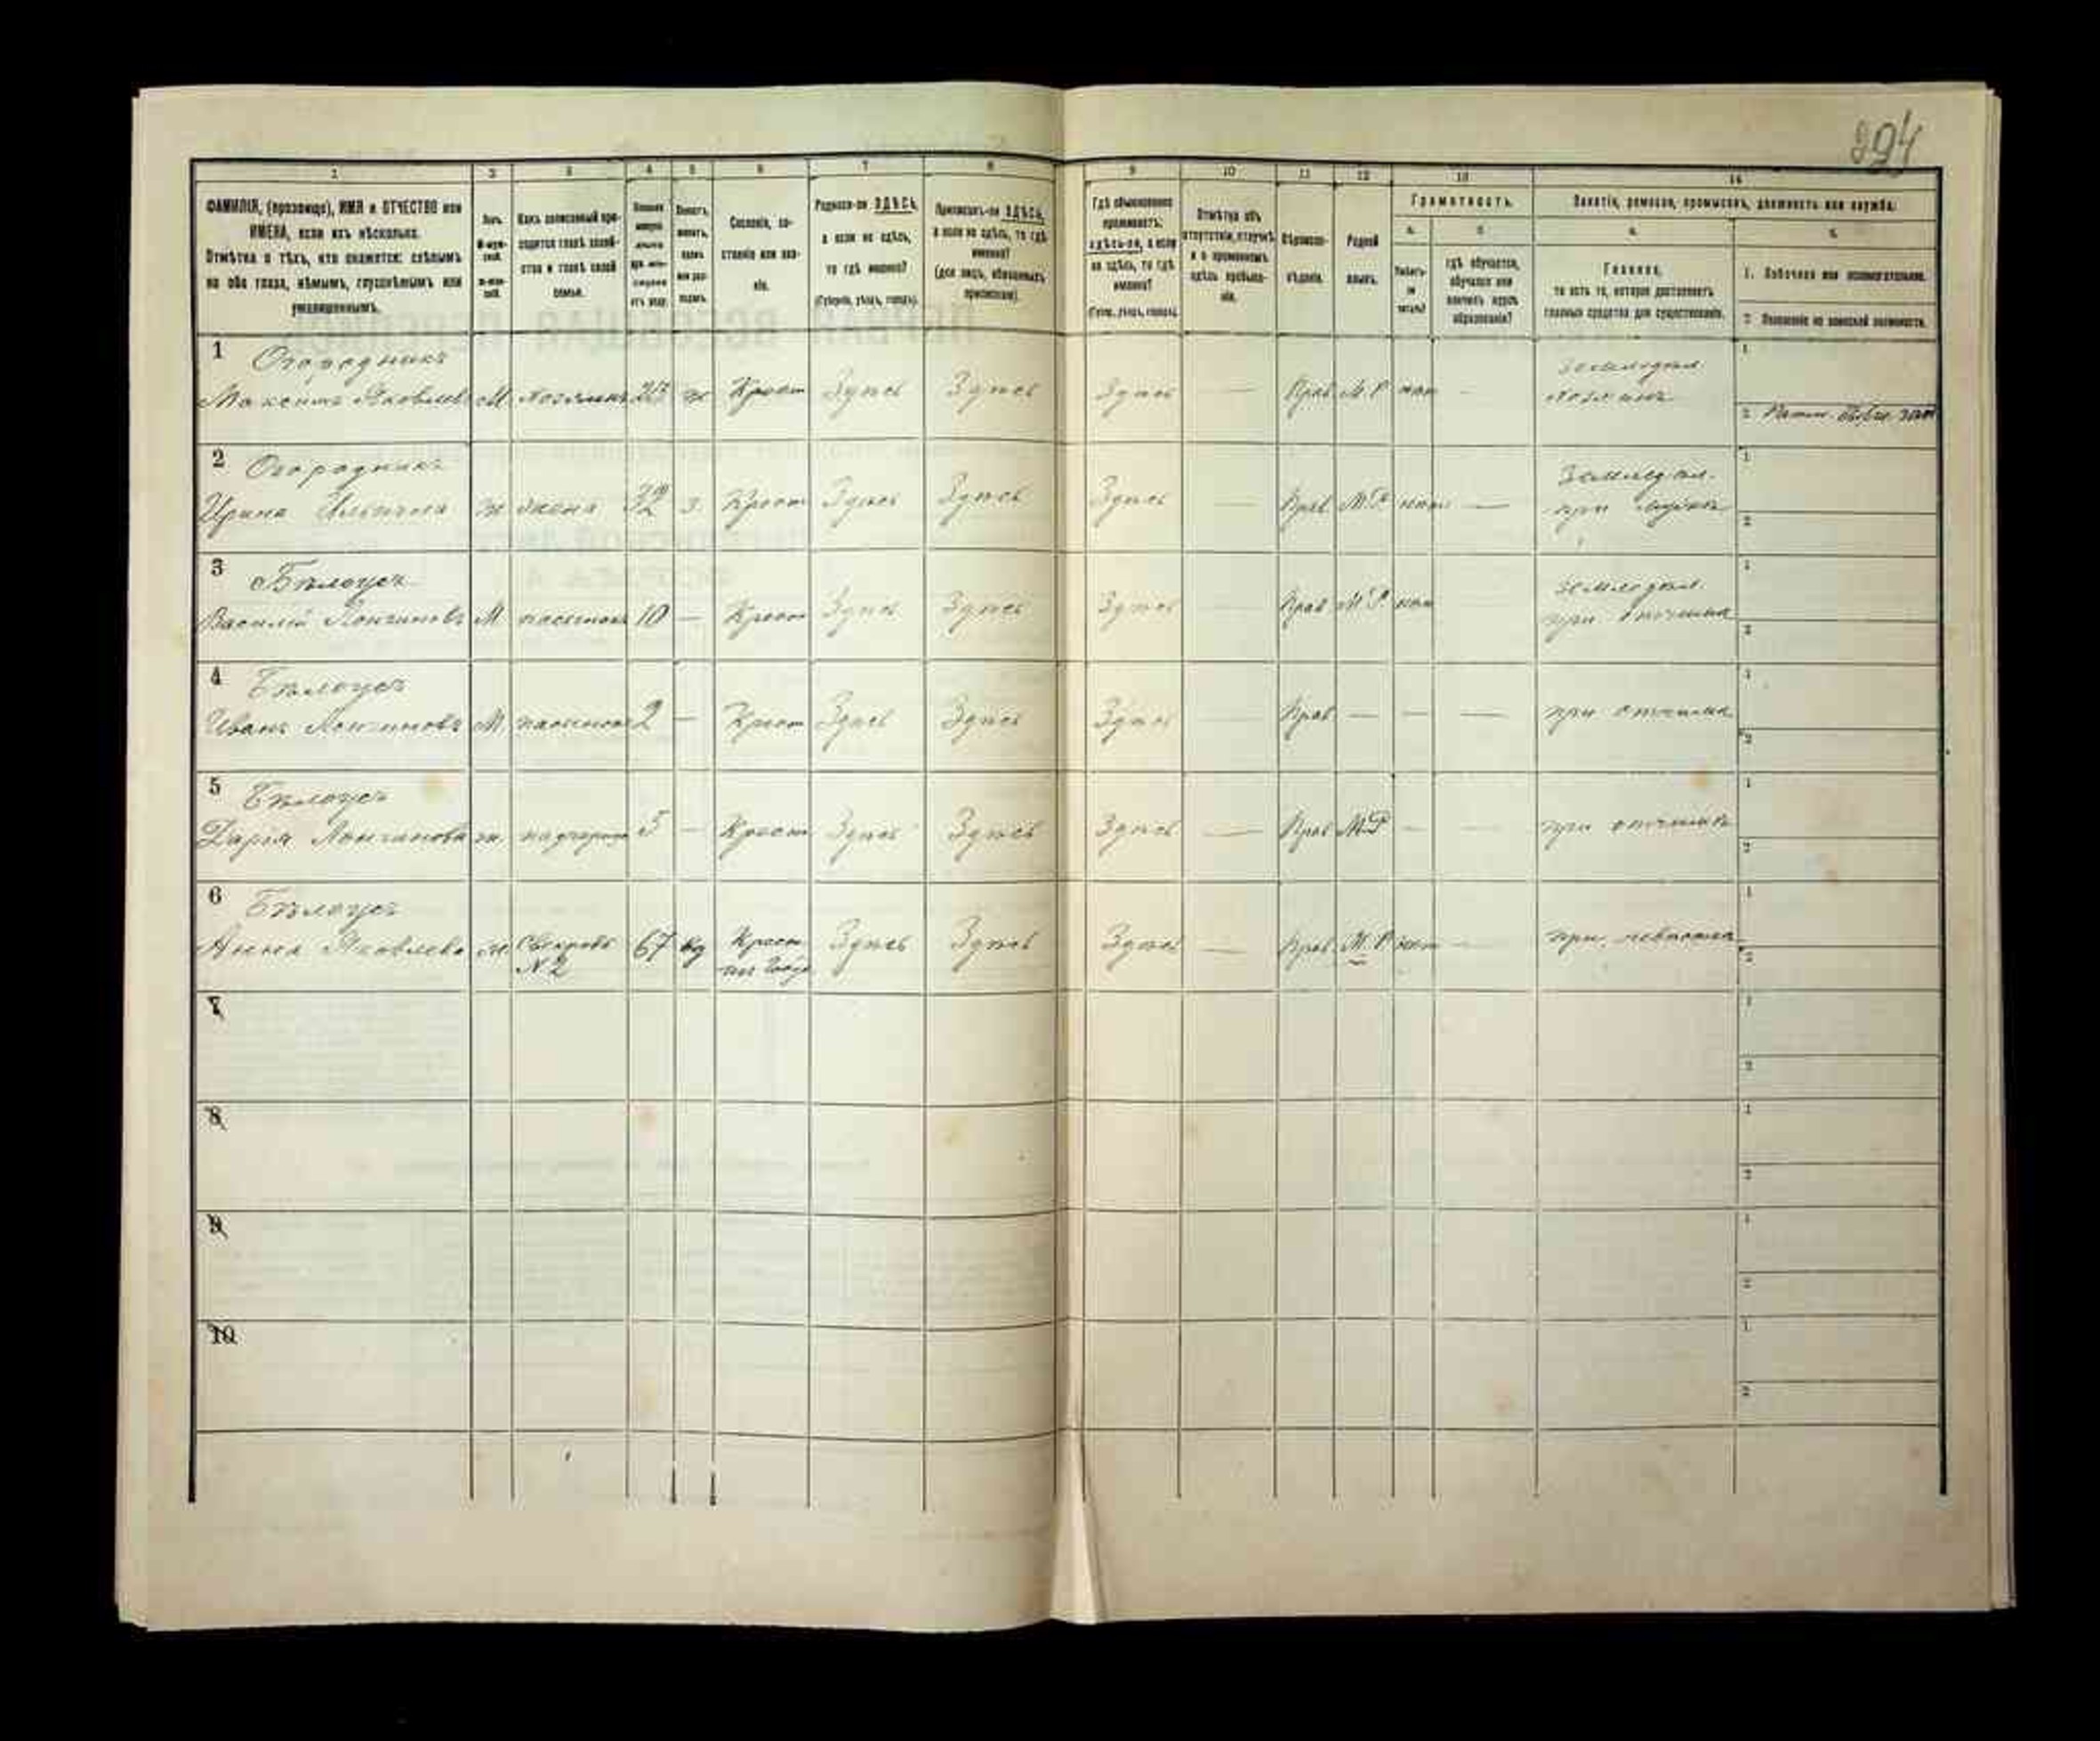 294
1 2 3 4 5 6 7 8 9 10 11 12 13 14
ФАМИЛІЯ, (прозвище), ИМЯ и ОТЧЕСТВО или
ИМЕНА, если ихъ нѣсколько.
Отмѣтка о тѣхъ, кто окажется: слѣпымъ
на оба глаза, нѣмымъ, глухонѣмымъ или
умалишеннымъ.
Полъ.
Какъ записанный при-
ходится главѣ хозяй-
ства и главѣ своей
семьи.
Сословіе, со-
стояніе или зва-
ніе.
Родился-ли ЗДѢСЬ,
а если не здѣсь,
то гдѣ именно?
(Губернія, уѣздъ, городъ).
Приписанъ-ли ЗДѢСЬ,
а если не здѣсь, то гдѣ
именно?
(для лицъ, обязанныхъ
припискою).
Гдѣ обыкновенно
проживаетъ:
здѣсь-ли, а если
не здѣсь, то гдѣ
именно?
(Губ., уѣздъ, городъ).
Отмѣтка объ
отсутствіи, отлучкѣ
и о временномъ
здѣсь пребыва-
ніи.
Вѣроиспо-
вѣданіе.
Родной
языкъ.
Грамотность.
а. б.
Умѣетъ-
ли
читать?
гдѣ обучается,
обучался или
кончилъ курсъ
образованія?
Занятіе, ремесло, промыселъ, должность или служба.
а. б.
Главное,
то есть то, которое доставляетъ
главныя средства для существованія.
1. Побочное или вспомогательное.
2. Положеніе по воинской повинности.
1 Огородникъ
Максимъ Яковлевъ М хозяинъ ж Крест Здѣсь Здѣсь Здѣсь — Прав М. Р нѣт — Земледѣл. хозяинъ
2 Огородникъ
Ирина Ильична ж жена 32 з. Крест Здѣсь Здѣсь Здѣсь — Прав М.Р нѣт — Земледѣл. при мужѣ
3 Бѣлоусъ
Василій Лонгиновъ М пасынокъ 10 — Крест Здѣсь Здѣсь Здѣсь — Прав М Р нѣт Земледѣл. при отчимѣ
4 Бѣлоусъ
Иванъ Лонгиновъ М пасынокъ 2 — Крест Здѣсь Здѣсь Здѣсь — Прав — — — при отчимѣ
5 Бѣлоусъ
Дарія Лонгинова ж. падчерица 5 — Крест Здѣсь Здѣсь Здѣсь — Прав М.Р — — при отчимѣ
6 Бѣлоусъ
Анна Яковлева ж. Свекровь 67 вд Крест Здѣсь Здѣсь Здѣсь — Прав. М. Р нѣт — при невѣстке
N 2
7
8
9
10